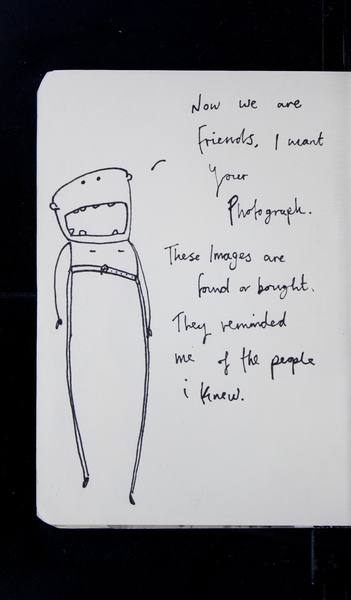 Now we are
friends, I want
your
Photograph.
These Images are
found or bought.
They reminded
me of the people
i knew.